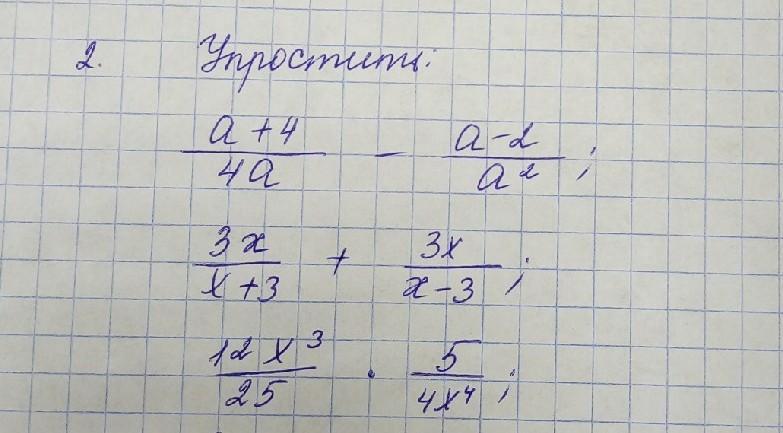 2. Упростить:
(a+4)/(4a) - (a-2)/(a²);
(3x)/(x+3) + (3x)/(x-3);
(12x³)/(25) · (5)/(4x⁴);